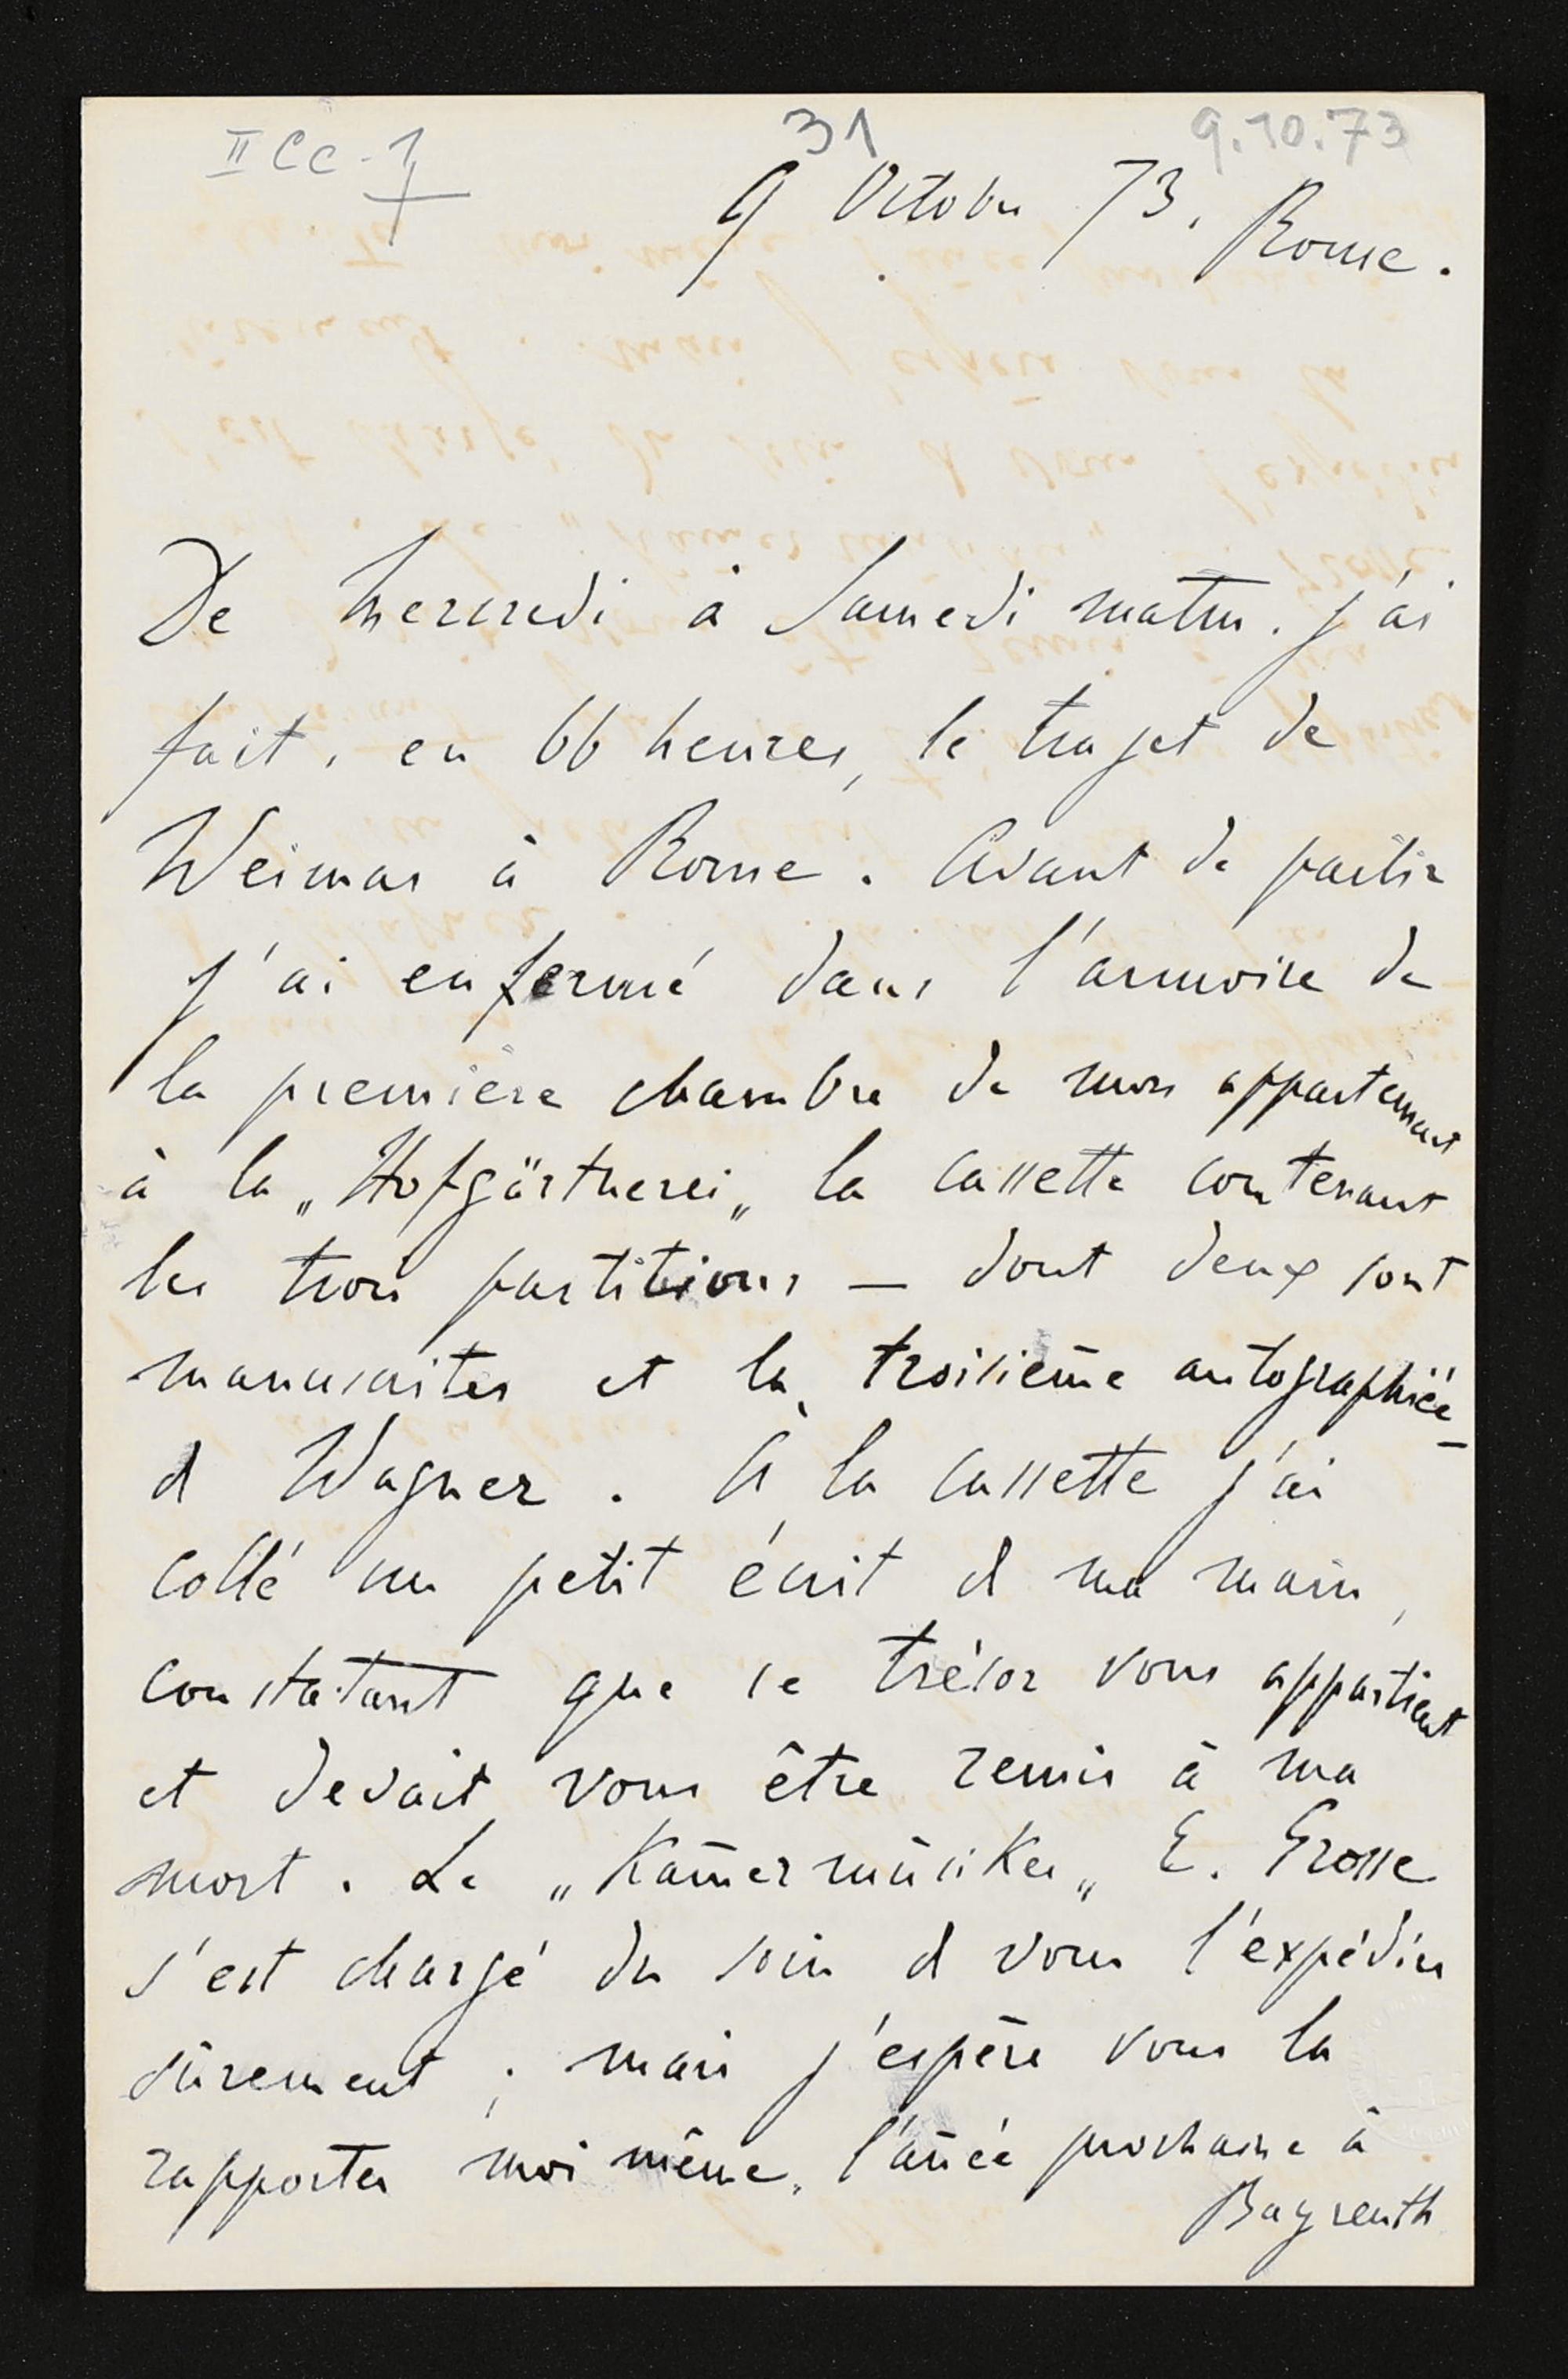 II Cc-1
31
9.10.73
9 Octobre 73. Rome.
De Mercredi à Samedi matin. j'ai
fait, en 66 heures, le trajet de
Weimar à Rome. Avant de partir
j'ai enfermé dans l'armoire de
la première chambre de mon appartement
à la „Hofgärtnerei„ la cassette contenant
les trois partitions — dont deux sont
manuscrites et la troisième autographiée —
de Wagner. A la cassette j'ai
collé un petit écrit de ma main,
constatant que ce trésor vous appartient
et devait vous être remis à ma
mort. Le „Kam̄ermusiker„ E. Grosse
s'est chargé du soin de vous l'expédier
sûrement ; mais j'espère vous la
rapporter moi même, l'an̄ée prochaine à
Bayreuth